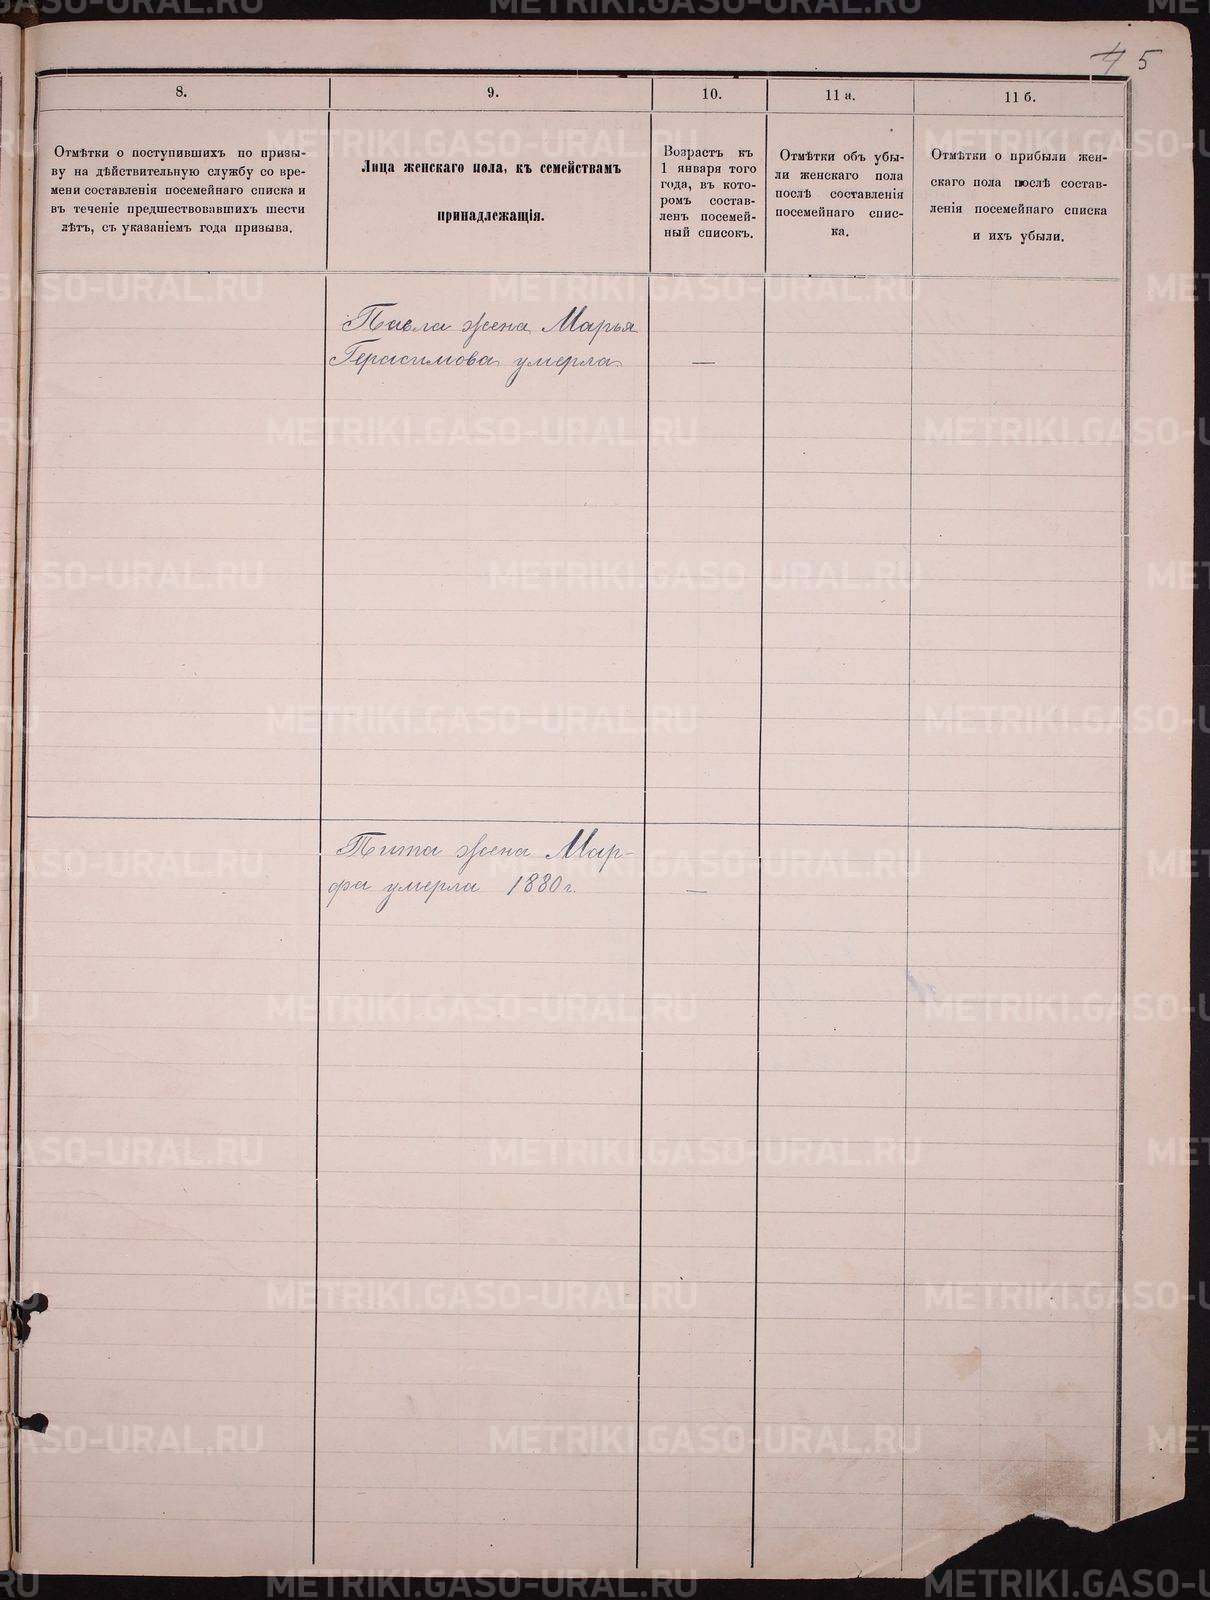 4 5
8.
9.
10.
11 а.
11 б.
Отмѣтки о поступившихъ по призы-
ву на дѣйствительную службу со вре-
мени составленія посемейнаго списка и
въ теченіе предшествовавшихъ шести
лѣтъ, съ указаніемъ года призыва.
Лица женскаго пола, къ семействамъ
принадлежащія.
Возрастъ къ
1 января того
года, въ кото-
ромъ состав-
ленъ посемей-
ный списокъ.
Отмѣтки объ убы-
ли женскаго пола
послѣ составленія
посемейнаго спис-
ка.
Отмѣтки о прибыли жен-
скаго пола послѣ состав-
ленія посемейнаго списка
и ихъ убыли.
Павла жена Марья
Герасимова умерла —
Тита жена Мар-
фа умерла 1880 г. —
METRIKI.GASO-URAL.RU